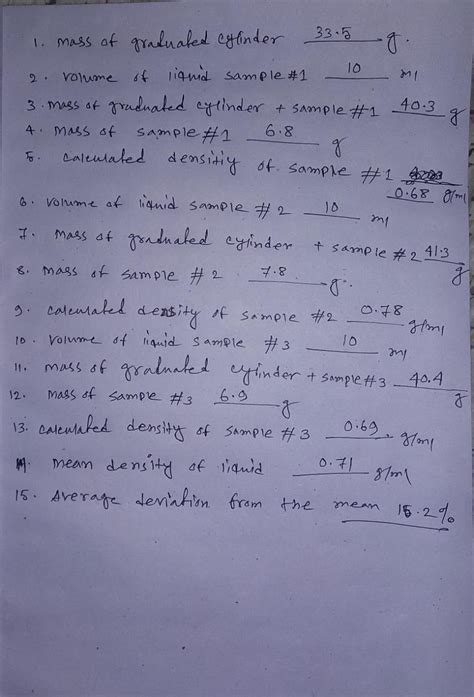 1. mass of graduated cylinder 33.5 g.
2. volume of liquid sample #1 10 ml
3. mass of graduated cylinder + sample #1 40.3 g
4. mass of sample #1 6.8 g
5. calculated densitiy of sample #1
0.68 g/ml
6. volume of liquid sample # 2 10 ml
7. mass of graduated cylinder + sample #2 41.3 g
8. mass of sample # 2 7.8 g.
9. calculated density of sample #2 0.78 g/ml
10. volume of liquid sample #3 10 ml
11. mass of graduated cylinder + sample #3 40.4 g
12. mass of sample #3 6.9 g
13. calculated density of sample #3 0.69 g/ml
14. mean density of liquid 0.71 g/ml
15. Average deviation from the mean 15.2%